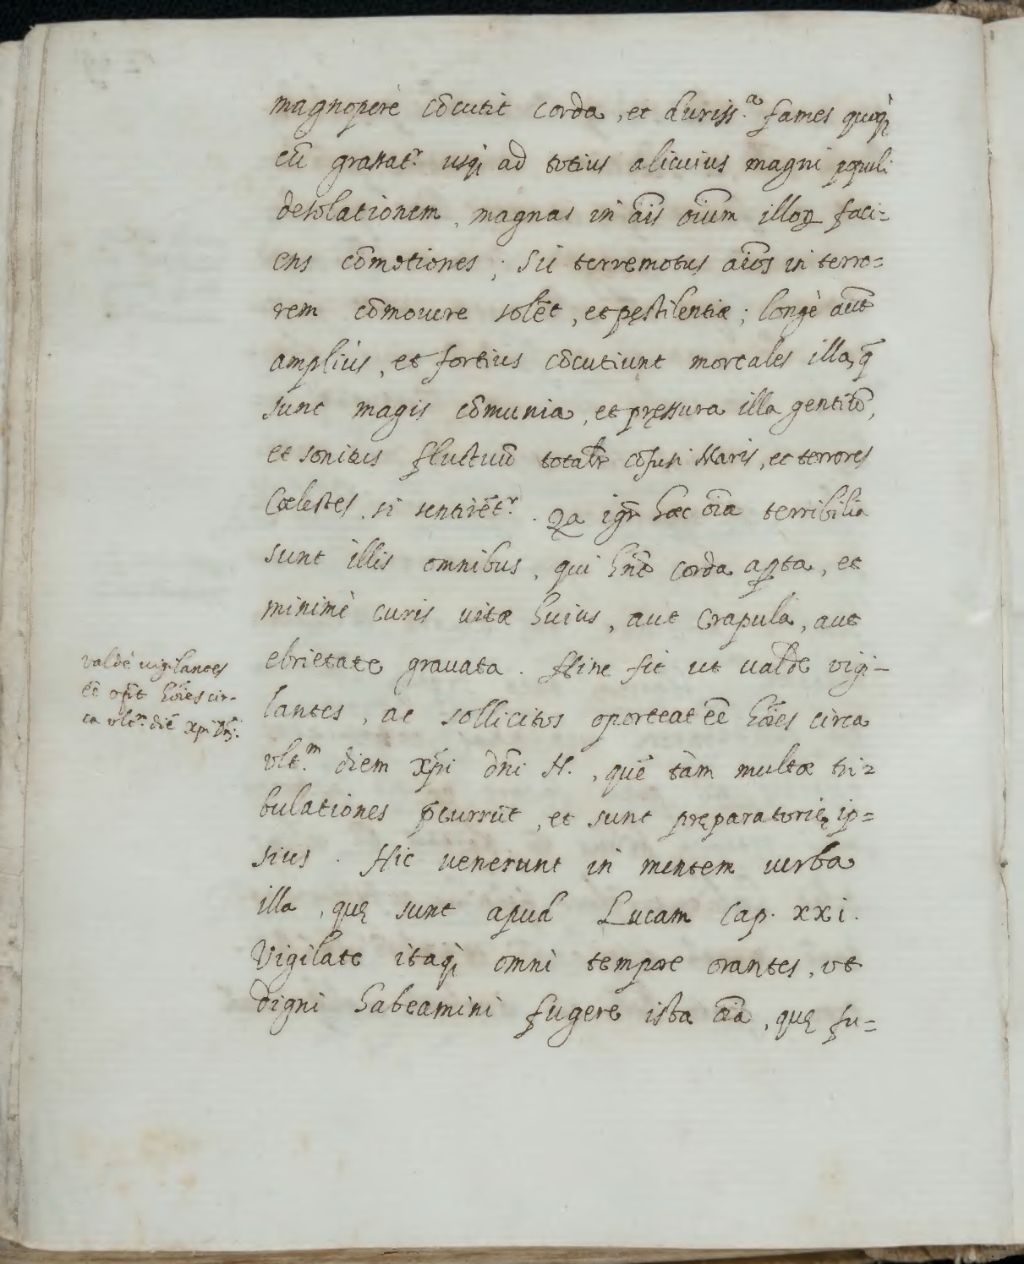 magnoperè cõcutit corda, et duriss.ᵃ fames quoq;
cũ grassat.ʳ usq; ad totius alicuius magni populi
desolationem, magnas in ãis oĩum illoꝝ faci=
ens cõmotiones; Sic terremotus aĩos in terro=
rem cõmouere solẽt, et pęstilentiæ; longè aũt
amplius, et fortius cõcutiunt mortales illa, q̃
sunt magis cõmunia, et pręssura illa gentiũ,
et sonitus fluctuũ totalr̃ cõfusi Maris, et terrores
Cœlestes, si sentirẽt.ʳ. Qa igr̃ hæc oĩa terribilia
sunt illis omnibus, qui hñt corda apta, et
minimè curis uitæ huius, aut Crapula, aut
ebrietate grauata. Hinc fit ut ualde vigi-
lantes, ac sollicitos oporteat eẽ hões circa
vlt.ᵐ diem xp̃i dñi N., quẽ tàm multæ tri=
bulationes p̃currũt, et sunt pręparatorię ip=
sius. Hic uenerunt in mentem uerba
illa, quę sunt apud Lucam Cap. xxi.
Vigilate itaq; omni tempore orantes, vt
digni habeamini fugere ista oĩa, quę fu=
valdè uigilantes
eẽ opт̃t hões cir-
ca vlt.ᵐ diẽ xp̃i Dñi.